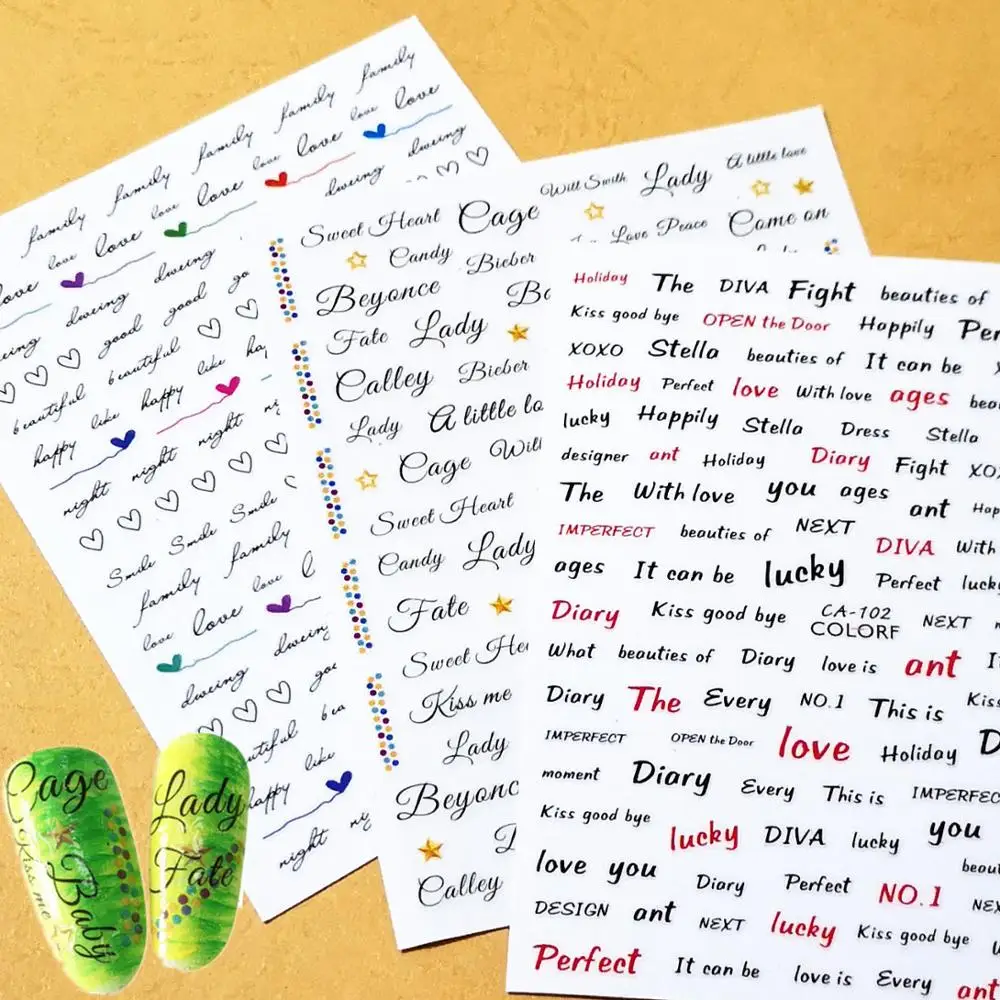 family family family family family
love love love love love love
dweing dweing
dweing dweing dweing
good good
beautiful beautiful
happy like happy like
night night night
Smile Smile Smile
family family
love love love
dweing dweing
like
happy
night
Will Smith Lady A little love
Sweet Heart Cage
Love Peace Come on
Candy Bieber
Beyonce
Fate Lady
Calley Bieber
Lady A little
Cage Will
Sweet Heart
Candy Lady
Fate
Sweet
Kiss me
Lady
Calley
Holiday The DIVA Fight beauties of
Kiss good bye OPEN the Door Happily
XOXO Stella beauties of It can be
Holiday Perfect love With love ages
lucky Happily Stella Dress Stella
designer ant Holiday Diary Fight
The With love you ages ant
IMPERFECT beauties of NEXT DIVA With
ages It can be lucky Perfect
Diary Kiss good bye CA-102 NEXT
COLORF
What beauties of Diary love is ant
Diary The Every NO.1 This is
IMPERFECT OPEN the Door love Holiday
moment Diary Every This is
Kiss good bye lucky DIVA lucky you
love you Diary Perfect NO.1
DESIGN ant NEXT lucky Kiss good bye
Perfect It can be love is Every ant
Cage
Kiss me
Baby
Lady
Fate